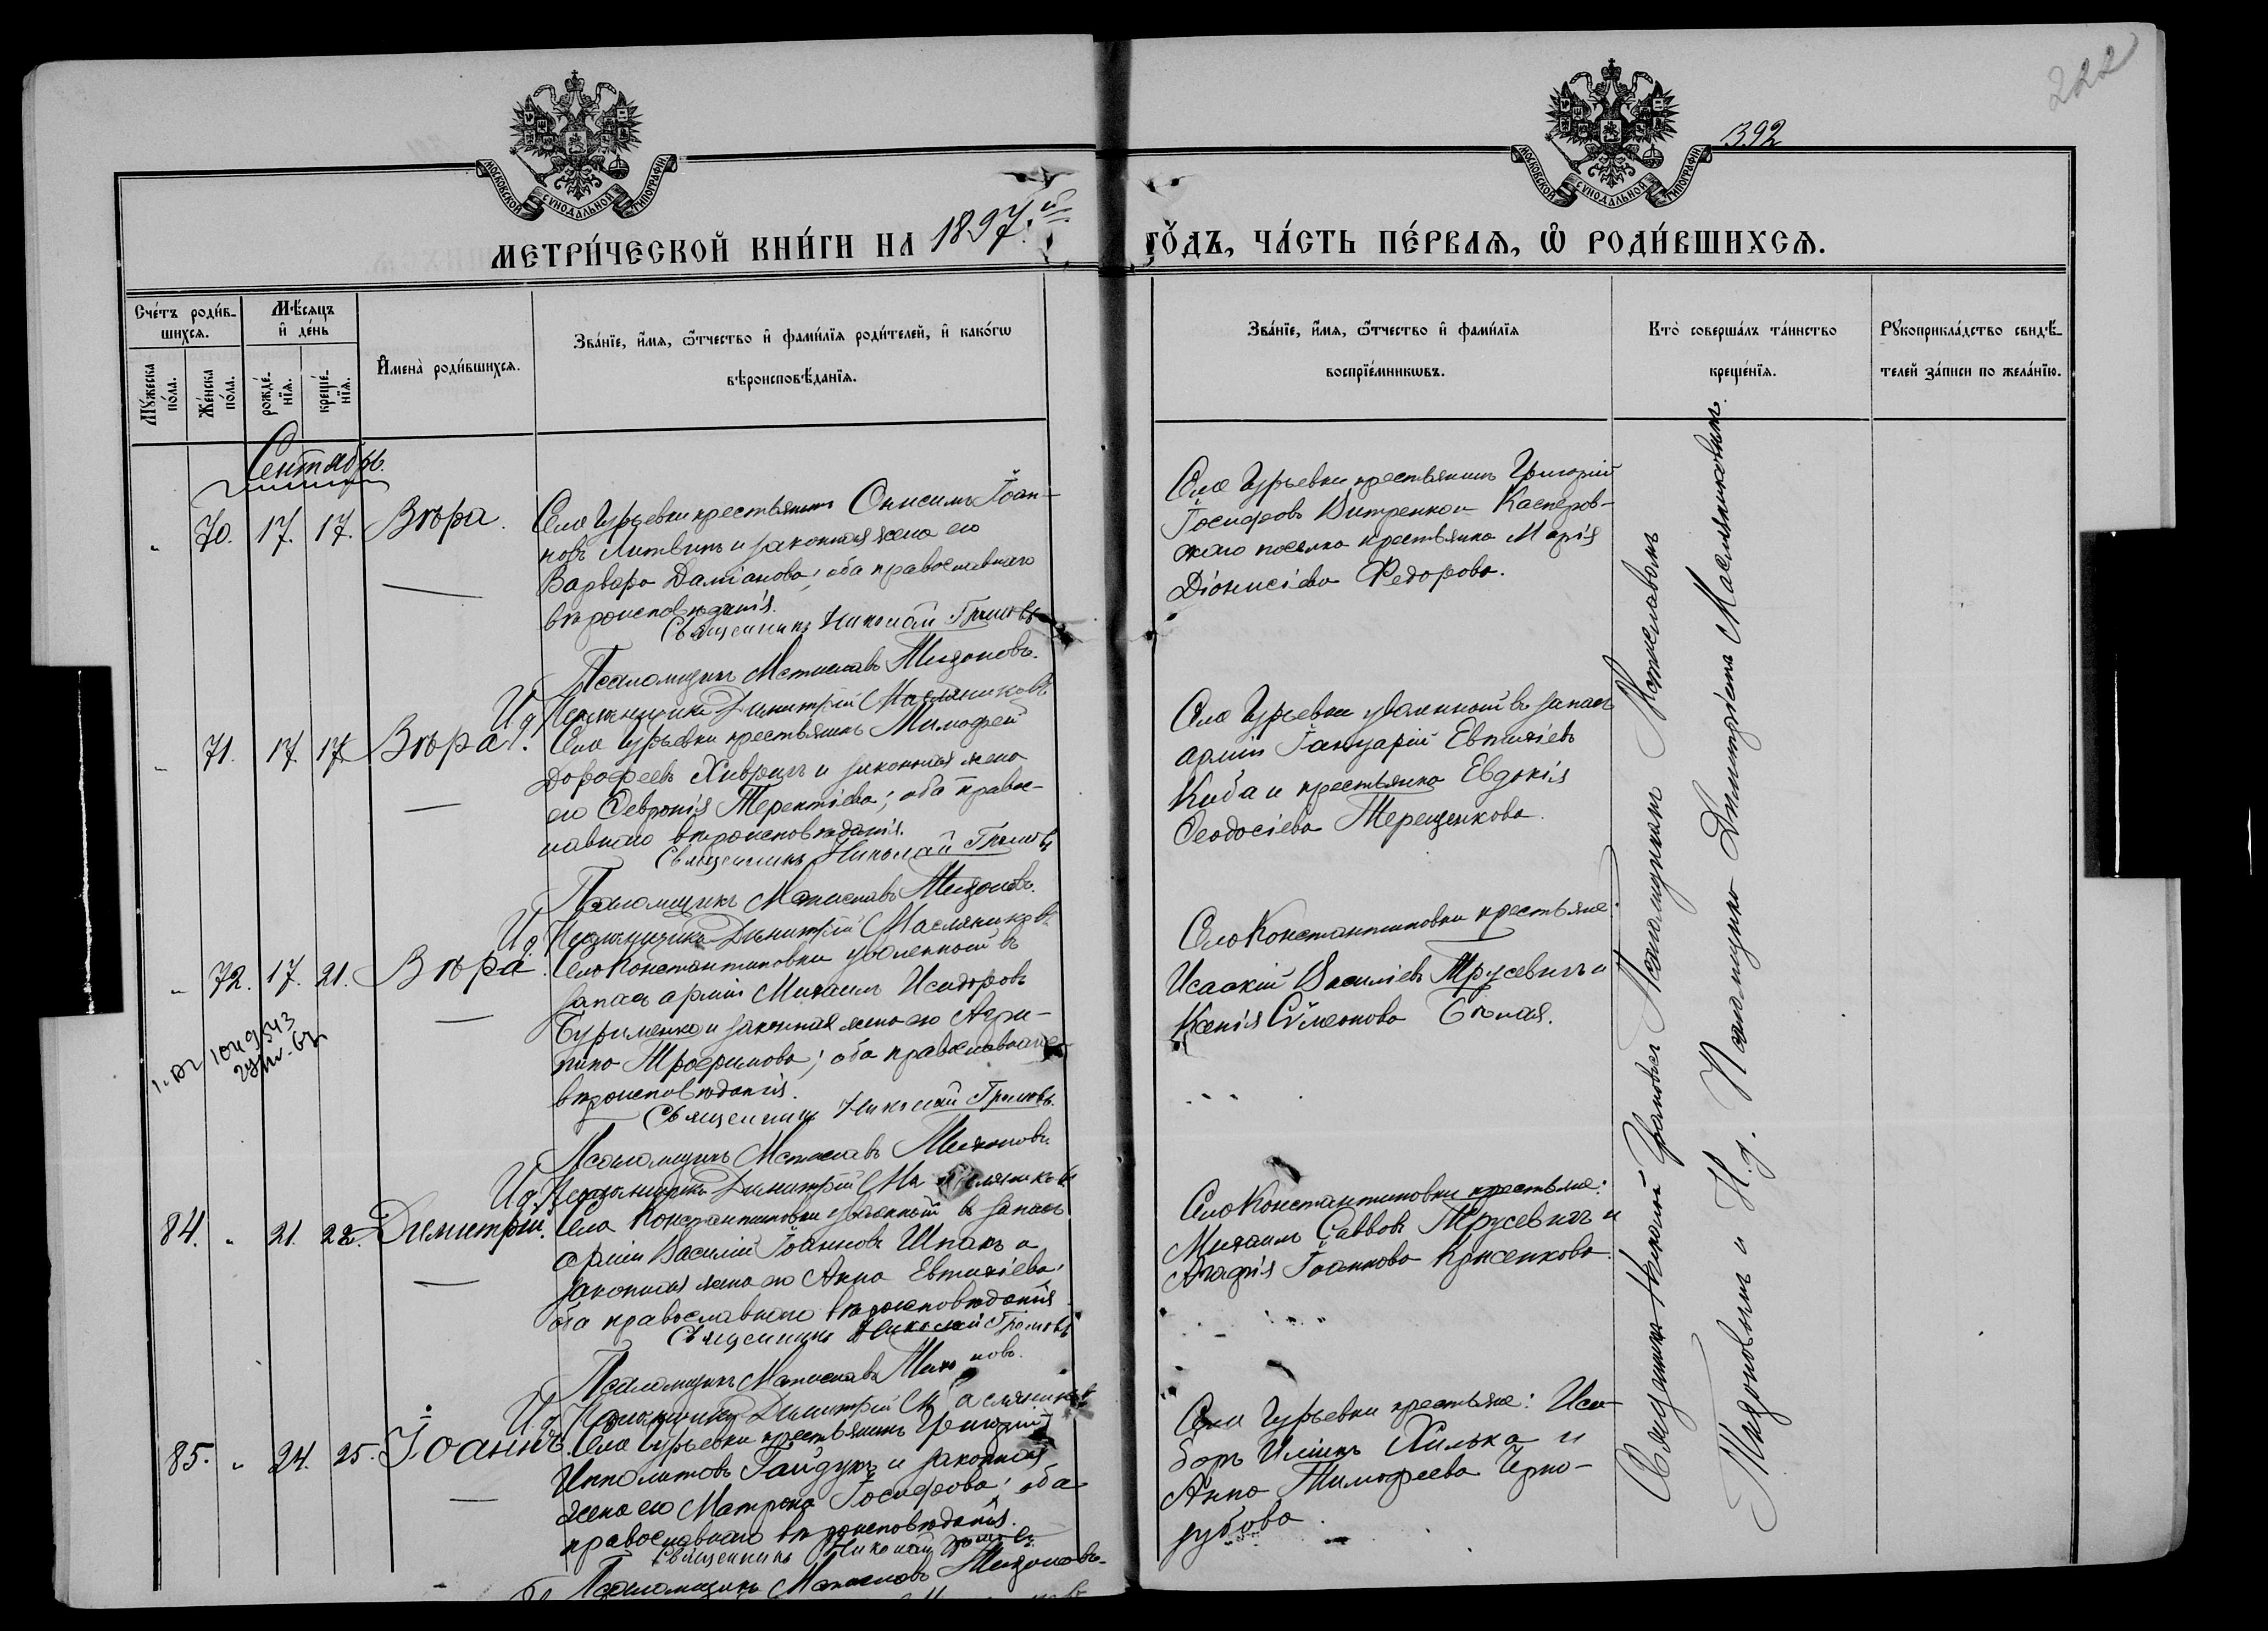 222
1392
МОСКОВСКОЙ СУНОДАЛЬНОЙ ТИПОГРАФІИ
МОСКОВСКОЙ СУНОДАЛЬНОЙ ТИПОГРАФІИ
МЕТРИ́ЧЕСКОЙ КНИ́ГИ НА 1897.й
ГО́ДЪ, ЧА́СТЬ ПЕ́РВАѦ, Ѡ РОДИ́ВШИХСѦ.
Сче́тъ роди́в-
шихсѧ.
Мꙋ́жеска
по́ла.
Же́нска
по́ла.
Мѣ́сѧцъ
и҆ де́нь
рожде́-
нїѧ.
креще́-
нїѧ.
И҆мена̀ роди́вшихсѧ.
Зва́нїе, и҆́мѧ, ѻ҆́тчество и҆ фами́лїѧ роди́телей, и҆ како́гѡ
вѣроисповѣ́данїѧ.
Зва́нїе, и҆́мѧ, ѻ҆́тчество и҆ фами́лїѧ
воспрїе́мникѡвъ.
Кто̀ соверша́лъ та́инство
креще́нїѧ.
Рꙋкоприкла́дство свидѣ́-
телей за́писи по жела́нїю.
Сентябрь.
" 70. 17. 17. Вѣра.
Села Гурьевки крестьянинъ Онисимъ Іоан-
новъ Литвинъ и законная жена его
Варвара Даміанова; оба православнаго
вѣроисповѣданія.
Священникъ Николай Грановъ
Псаломщикъ Мстиславъ Тихоновъ.
И д Псаломщика Димитрій Масляниковъ
Села Гурьевки крестьянинъ Григорій
Іосифовъ Витренко и Касперов-
скаго поселка крестьянка Марія
Діонисіева Федорова.
" 71. 17. 17. Вѣра.
Села Гурьевки крестьянинъ Тимофей
Дорофеевъ Хивричъ и законная жена
его Февронія Терентіева; оба правос-
лавнаго вѣроисповѣданія.
Священникъ Николай Грановъ
Псаломщикъ Мстиславъ Тихоновъ.
И д Псаломщика Димитрій Масляниковъ
Села Гурьевки уволенный въ запасъ
арміи Іануарій Евтихіевъ
Киба и крестьянка Евдокія
Феодосіева Терещенкова.
" 72. 17. 21. Вѣра.
Села Константиновки уволенный въ
запасъ арміи Михаилъ Исидоровъ
Бурименко и законная жена его Агри-
пина Трофимова; оба православнаго
вѣроисповѣданія.
Священникъ Николай Грановъ.
Псаломщикъ Мстиславъ Тихоновъ
И д Псаломщика Димитрій Масляниковъ
Села Константиновки крестьяне:
Исаакій Василіевъ Трусевичъ и
Ксенія Сѵмеонова Бѣлая.
84. " 21. 22. Димитрій.
Села Константиновки уволенный въ запасъ
арміи Василій Іоанновъ Шпакъ и
законная жена его Анна Евтихіева;
оба православнаго вѣроисповѣданія
Священникъ Николай Грановъ
Псаломщикъ Мстиславъ Тихоновъ.
И д Псаломщика Димитрій Масляниковъ
Села Константиновки крестьяне:
Михаилъ Саввовъ Трусевичъ и
Агафія Іоаннова
85. " 24. 25. Іоаннъ.
Села Гурьевки крестьянинъ Григорій
Ипполитовъ Гайдукъ и законная
жена его Матрона Іосифова; оба
православнаго вѣроисповѣданія.
Священникъ Николай Грановъ
Псаломщикъ Мстиславъ Тихоновъ.
Села Гурьевки крестьяне: Иси-
доръ Иліинъ Хилька и
Анна Тимофеева Черно-
зубова.
Священникъ Николай Грановъ съ Псаломщикомъ Мстиславомъ
Тихоновымъ и И. д. Псаломщика Димитріемъ Масляниковымъ.